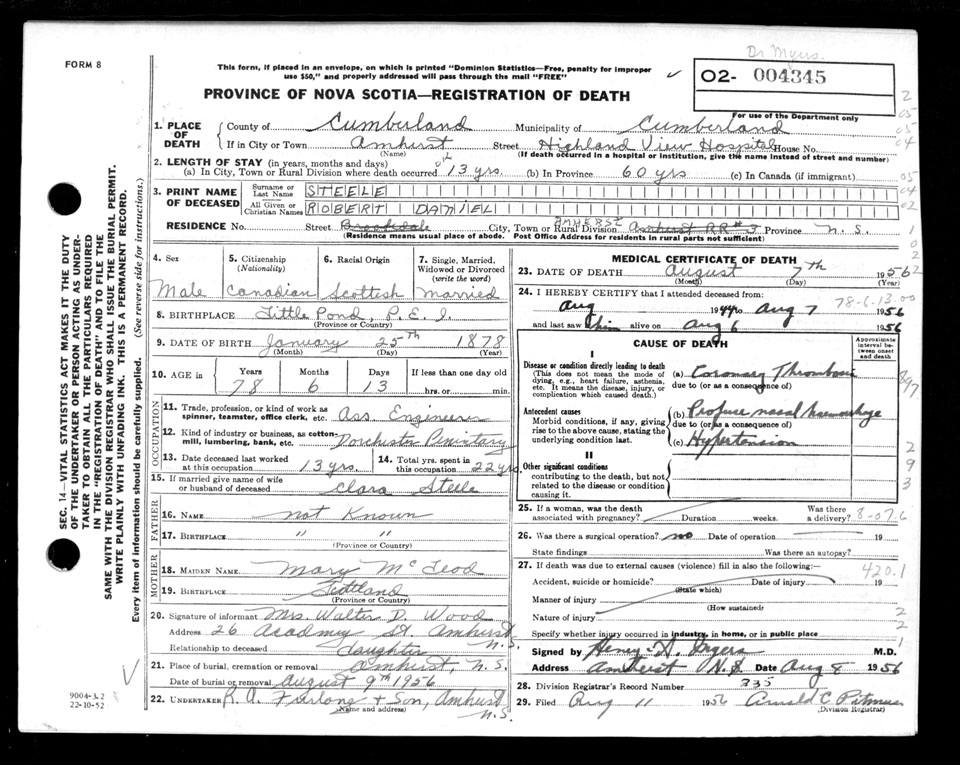 Dr Myers.
FORM 8
This form, if placed in an envelope, on which is printed "Dominion Statistics—Free, penalty for improper
use $50," and properly addressed will pass through the mail "FREE"
02- 004345
For use of the Department only
PROVINCE OF NOVA SCOTIA—REGISTRATION OF DEATH
1. PLACE OF DEATH
County of Cumberland Municipality of Cumberland
If in City or Town Amherst Street Highland View Hospital House No.
(Name) (If death occurred in a hospital or institution, give the name instead of street and number)
2. LENGTH OF STAY (in years, months and days)
(a) In City, Town or Rural Division where death occurred 13 yrs. (b) In Province 60 yrs (c) In Canada (if immigrant)
3. PRINT NAME OF DECEASED
Surname or Last Name STEELE
All Given or Christian Names ROBERT DANIEL
RESIDENCE No. Street Brookdale City, Town or Rural Division AMHERST Amhust RR#3 Province N.S.
(Residence means usual place of abode. Post Office Address for residents in rural parts not sufficient)
4. Sex Male
5. Citizenship (Nationality) Canadian
6. Racial Origin Scottish
7. Single, Married, Widowed or Divorced (write the word) married
8. BIRTHPLACE Little Pond, P.E.I.
(Province or Country)
9. DATE OF BIRTH January 25th 1878
(Month) (Day) (Year)
10. AGE in Years Months Days If less than one day old
78 6 13 hrs. or min.
OCCUPATION
11. Trade, profession, or kind of work as spinner, teamster, office clerk, etc. Ass. Engineer
12. Kind of industry or business, as cotton-mill, lumbering, bank, etc. Dorchester Penitary
13. Date deceased last worked at this occupation 13 yrs.
14. Total yrs. spent in this occupation 22 yrs.
15. If married give name of wife or husband of deceased Clara Steele
FATHER
16. NAME not Known
17. BIRTHPLACE " "
(Province or Country)
MOTHER
18. MAIDEN NAME Mary McLeod
19. BIRTHPLACE Scotland
(Province or Country)
20. Signature of informant Mrs. Walter D. Wood
Address 26 Acadmey St. Amhurst N.S.
Relationship to deceased daughter
21. Place of burial, cremation or removal Amhurst, N.S.
Date of burial or removal August 9th 1956
22. UNDERTAKER R.A. Furlong & Son, Amhurst N.S.
(Name and address)
MEDICAL CERTIFICATE OF DEATH
23. DATE OF DEATH August 7th 1956
(Month) (Day) (Year)
24. I HEREBY CERTIFY that I attended deceased from:
Aug 1944 to Aug 7 1956
78-6-13.00
and last saw him alive on Aug 6 1956
CAUSE OF DEATH
Approximate interval between onset and death
I
Disease or condition directly leading to death
(This does not mean the mode of dying, e.g., heart failure, asthenia, etc. It means the disease, injury, or complication which caused death.)
(a) Coronary Thrombosis
due to (or as a consequence of)
Antecedent causes
Morbid conditions, if any, giving rise to the above cause, stating the underlying condition last.
(b) Profuse nasal haemorrhage
due to (or as a consequence of)
(c) Hypertension
II
Other significant conditions
contributing to the death, but not related to the disease or condition causing it.
25. If a woman, was the death associated with pregnancy? Duration weeks. Was there a delivery? 8-07.6
26. Was there a surgical operation? no Date of operation 19
State findings Was there an autopsy?
27. If death was due to external causes (violence) fill in also the following:— 420.1
Accident, suicide or homicide? Date of injury 19
(State which)
Manner of injury
(How sustained)
Nature of injury
Specify whether injury occurred in industry, in home, or in public place
Signed by Henry M.D.
Address Amherst N.S. Date Aug 8 1956
28. Division Registrar's Record Number 335
29. Filed Aug 11 1956 Arnold C.
(Division Registrar)
SEC. 14—VITAL STATISTICS ACT MAKES IT THE DUTY
OF THE UNDERTAKER OR PERSON ACTING AS UNDER-
TAKER TO OBTAIN ALL THE PARTICULARS REQUIRED
IN THE "REGISTRATION OF DEATH" AND TO FILE THE
SAME WITH THE DIVISION REGISTRAR WHO SHALL ISSUE THE BURIAL PERMIT.
WRITE PLAINLY WITH UNFADING INK. THIS IS A PERMANENT RECORD.
Every item of information should be carefully supplied. (See reverse side for instructions.)
9004-3.2
22-10-52